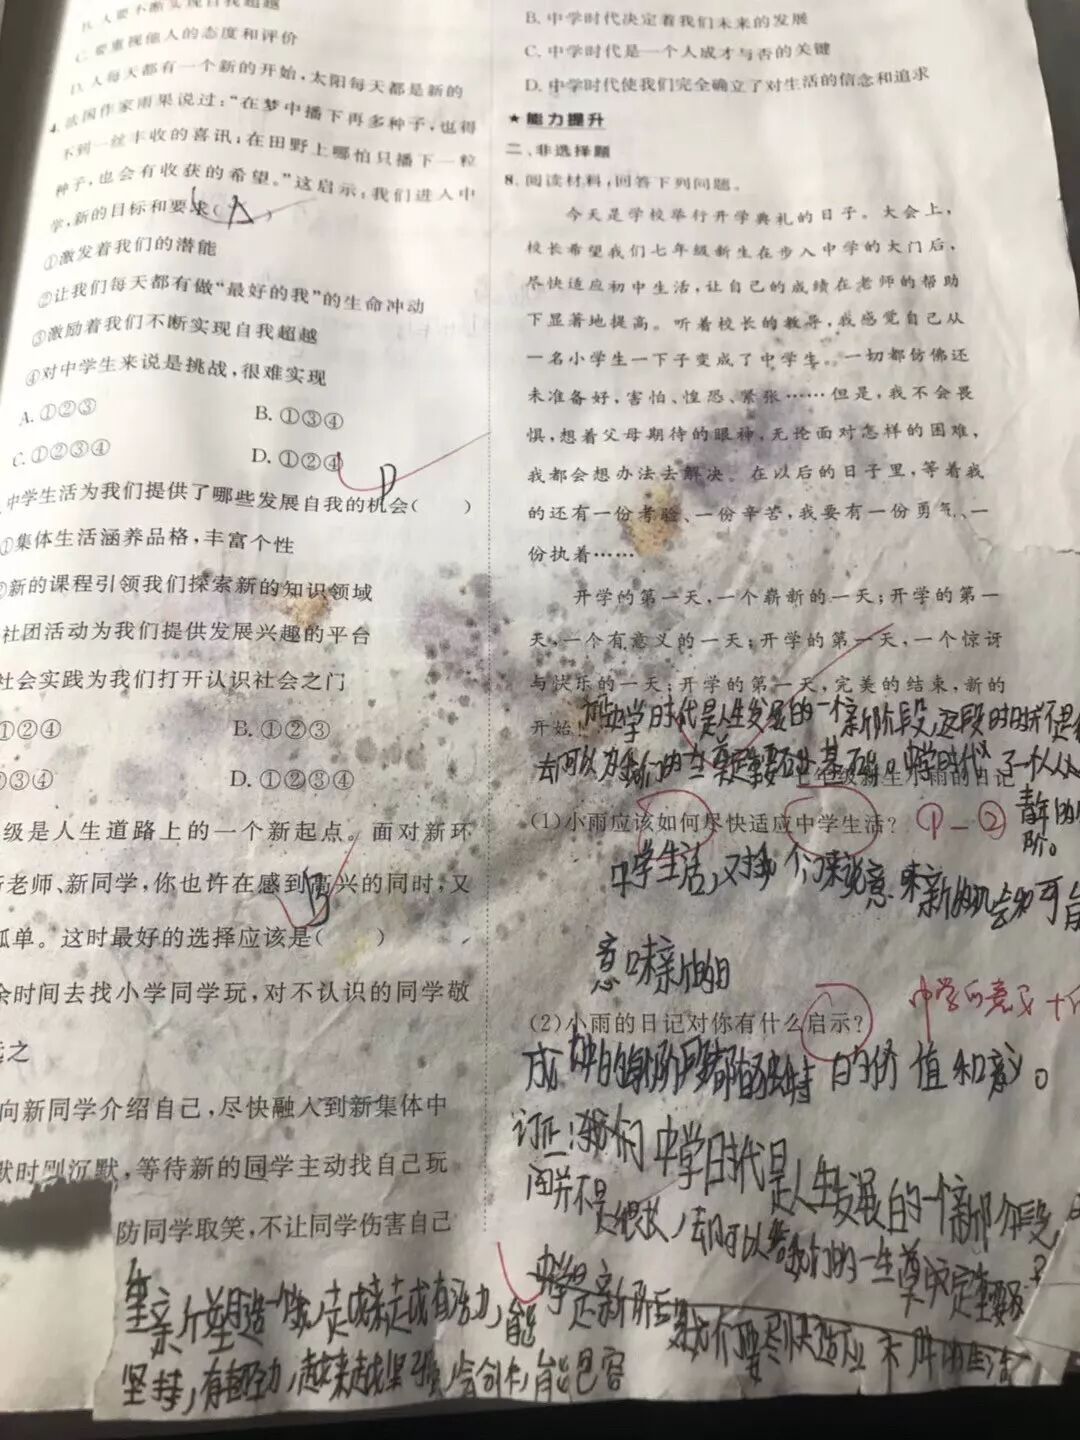 B. 人要不断实现自我超越
C. 要重视他人的态度和评价
D. 人每天都有一个新的开始，太阳每天都是新的
4. 法国作家雨果说过：“在梦中播下再多种子，也得
不到一丝丰收的喜讯；在田野上哪怕只播下一粒
种子，也会有收获的希望。”这启示，我们进入中
学，新的目标和要求（A）
①激发着我们的潜能
②让我们每天都有做“最好的我”的生命冲动
③激励着我们不断实现自我超越
④对中学生来说是挑战，很难实现
A. ①②③
B. ①③④
C. ①②③④
D. ①②④
D
中学生活为我们提供了哪些发展自我的机会（ ）
①集体生活涵养品格，丰富个性
新的课程引领我们探索新的知识领域
社团活动为我们提供发展兴趣的平台
社会实践为我们打开认识社会之门
①②④
B. ①②③
③④
D. ①②③④
级是人生道路上的一个新起点。面对新环
老师、新同学，你也许在感到高兴的同时，又
孤单。这时最好的选择应该是（ ）
B
余时间去找小学同学玩，对不认识的同学敬
远之
向新同学介绍自己，尽快融入到新集体中
默时则沉默，等待新的同学主动找自己玩
防同学取笑，不让同学伤害自己
有活力，能
坚持，有韧力，越来越坚强，会创，能包容
B. 中学时代决定着我们未来的发展
C. 中学时代是一个人成才与否的关键
D. 中学时代使我们完全确立了对生活的信念和追求
★能力提升
二、非选择题
8. 阅读材料，回答下列问题。
今天是学校举行开学典礼的日子。大会上，
校长希望我们七年级新生在步入中学的大门后，
尽快适应初中生活，让自己的成绩在老师的帮助
下显著地提高。听着校长的教导，我感觉自己从
一名小学生一下子变成了中学生。一切都仿佛还
未准备好，害怕、惶恐、紧张……但是，我不会畏
惧，想着父母期待的眼神，无论面对怎样的困难，
我都会想办法去解决。在以后的日子里，等着我
的还有一份考验、一份辛苦，我要有一份勇气、一
份执着……
开学的第一天，一个崭新的一天；开学的第一
天，一个有意义的一天；开学的第一天，一个惊讶
与快乐的一天；开学的第一天，完美的结束，新的
开始！
中学时代是人生发展的一个新阶段，这段时
七年级新生小雨的日记
(1)小雨应该如何尽快适应中学生活？
P－②
中学生活，对我们来说意味新的机会和可能
意味新的
(2)小雨的日记对你有什么启示？
中学的意义＋
的价值和意义。
我们中学时代是人生发展的一个新阶段
我们的一生奠定重要
我们要尽快适应